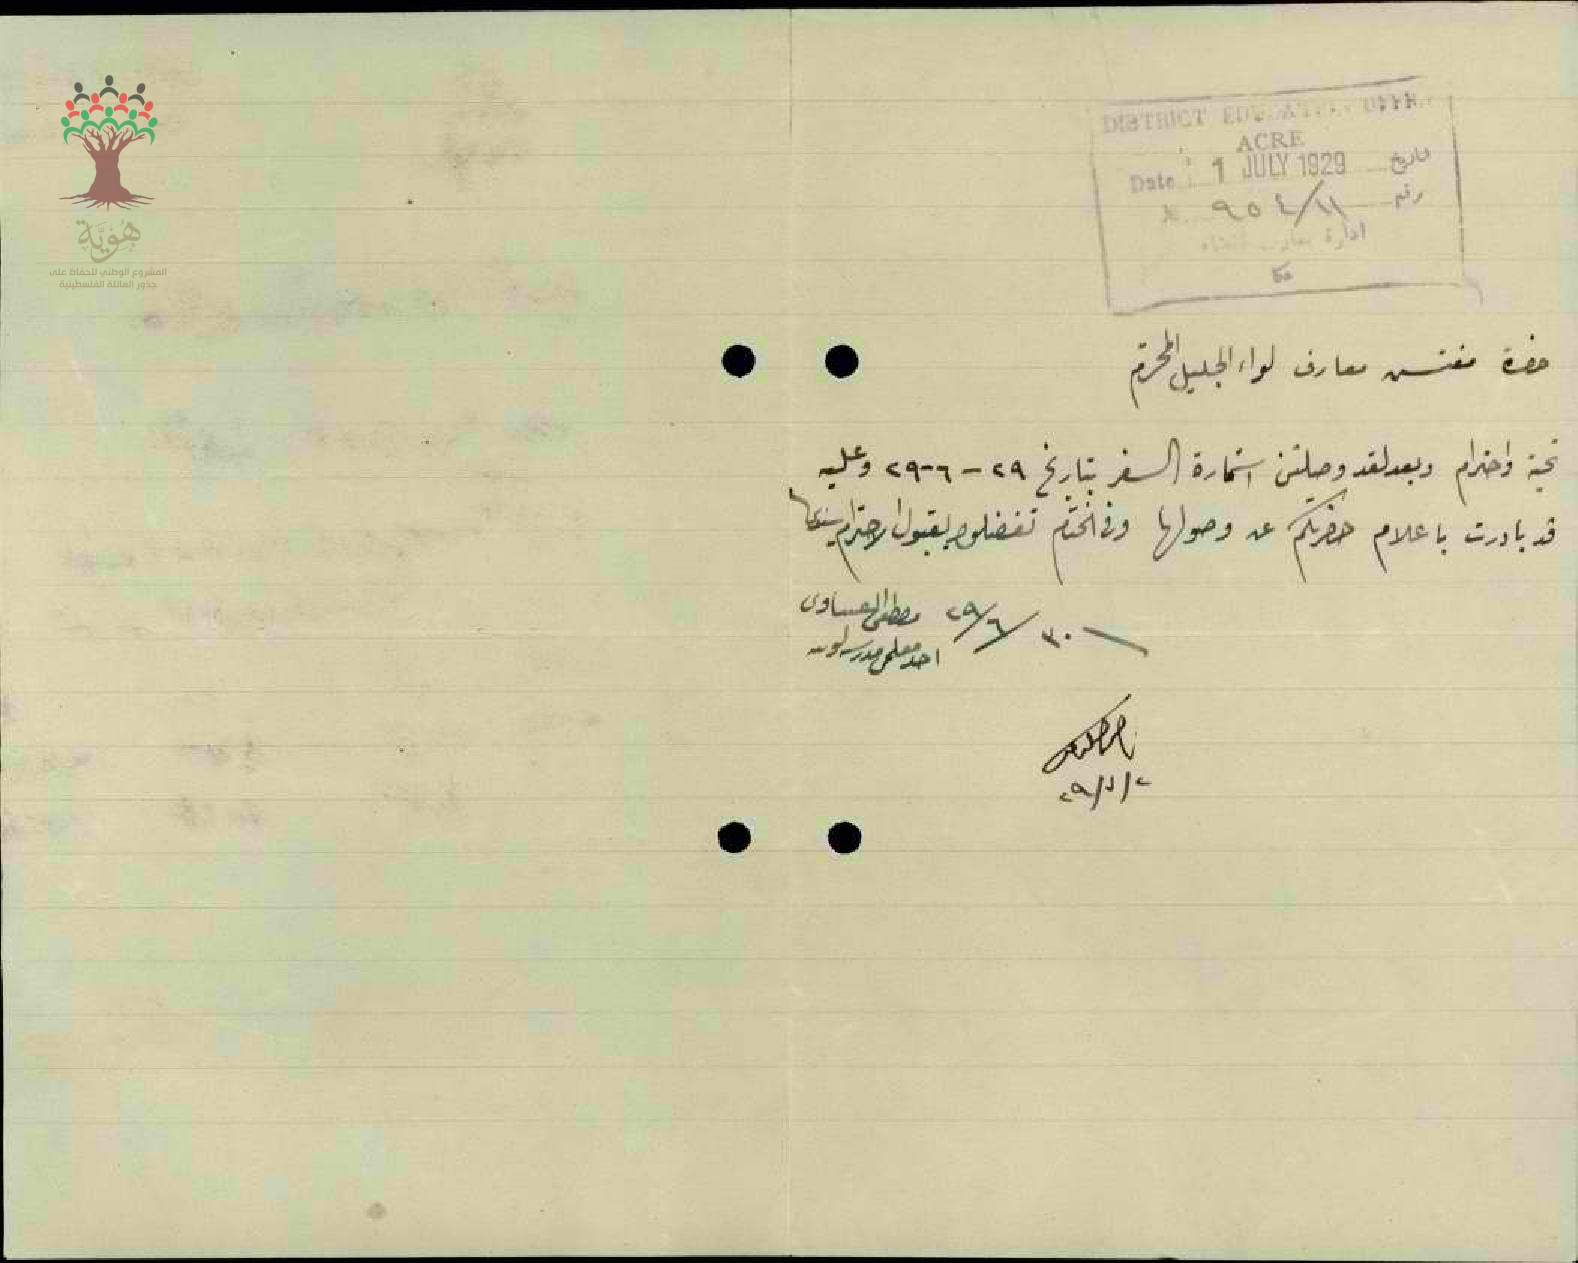 هوية
المشروع الوطني للحفاظ على
جذور العائلة الفلسطينية
DISTRICT EDUCATION OFFICE
ACRE
Date 1 JULY 1929 تاريخ
№ ٩٥٤/١١ رقم
ادارة معارف
حضرة مفتش معارف لواء الجليل المحترم
تحية واحترام وبعد لقد وصلتني استمارة السفر بتاريخ ٢٩-٦-٢٩ وعليه
قد بادرت باعلام حضرتكم عن وصولها وفي الختام تفضلوا بقبول الاحترام سيدي
٣٠/٦/٢٩ مصطفى العيساوي
احد معلمي مدرسة
٢٩/٧/٢